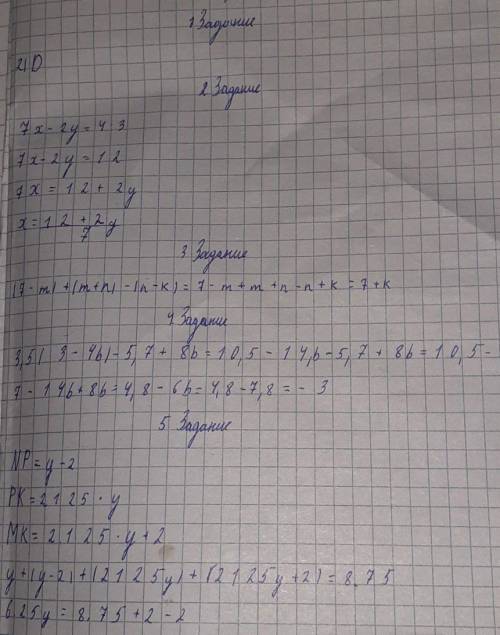 1 Задание
2) D
2 Задание
7x - 2y = 4 3
7x - 2y = 1 2
7x = 1 2 + 2y
x = 1 2 + 2y
7
3 Задание
(7 - m) + (m + n) - (n - k) = 7 - m + m + n - n + k = 7 + k
4 Задание
3,5( 3 - 4b) - 5,7 + 8b = 1 0,5 - 1 4,b - 5,7 + 8b = 1 0,5 -
7 - 1 4b + 8b = 4,8 - 6b = 4,8 - 7,8 = - 3
5 Задание
NP = y - 2
PK = 2 1 2 5 · y
MK = 2 1 2 5 · y + 2
y + (y - 2) + (2 1 2 5y) + (2 1 2 5y + 2) = 8.75
6 25y = 8.75 + 2 - 2